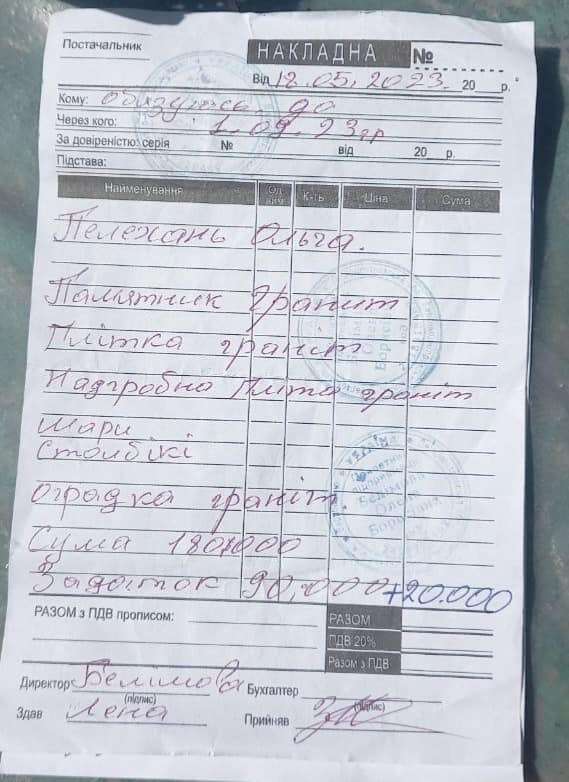 Постачальник
НАКЛАДНА №
Від 12.05.2023. 20 р.
Кому: обязуюсь до
Через кого: 1.09.23гр
За довіреністю: серія № від 20 р.
Підстава:
Найменування Од. вим К-ть Ціна Сума
Пелехань Ольга.
Памятник граніт
Плітка граніт
Надгробна Плита граніт
Шари
Столбікі
оградка граніт
Сума 180000
Задаток 90.000 +20.000
РАЗОМ з ПДВ прописом: РАЗОМ
ПДВ 20%
Разом з ПДВ
Директор Белімова Бухгалтер
(підпис) (підпис)
Здав Лена Прийняв